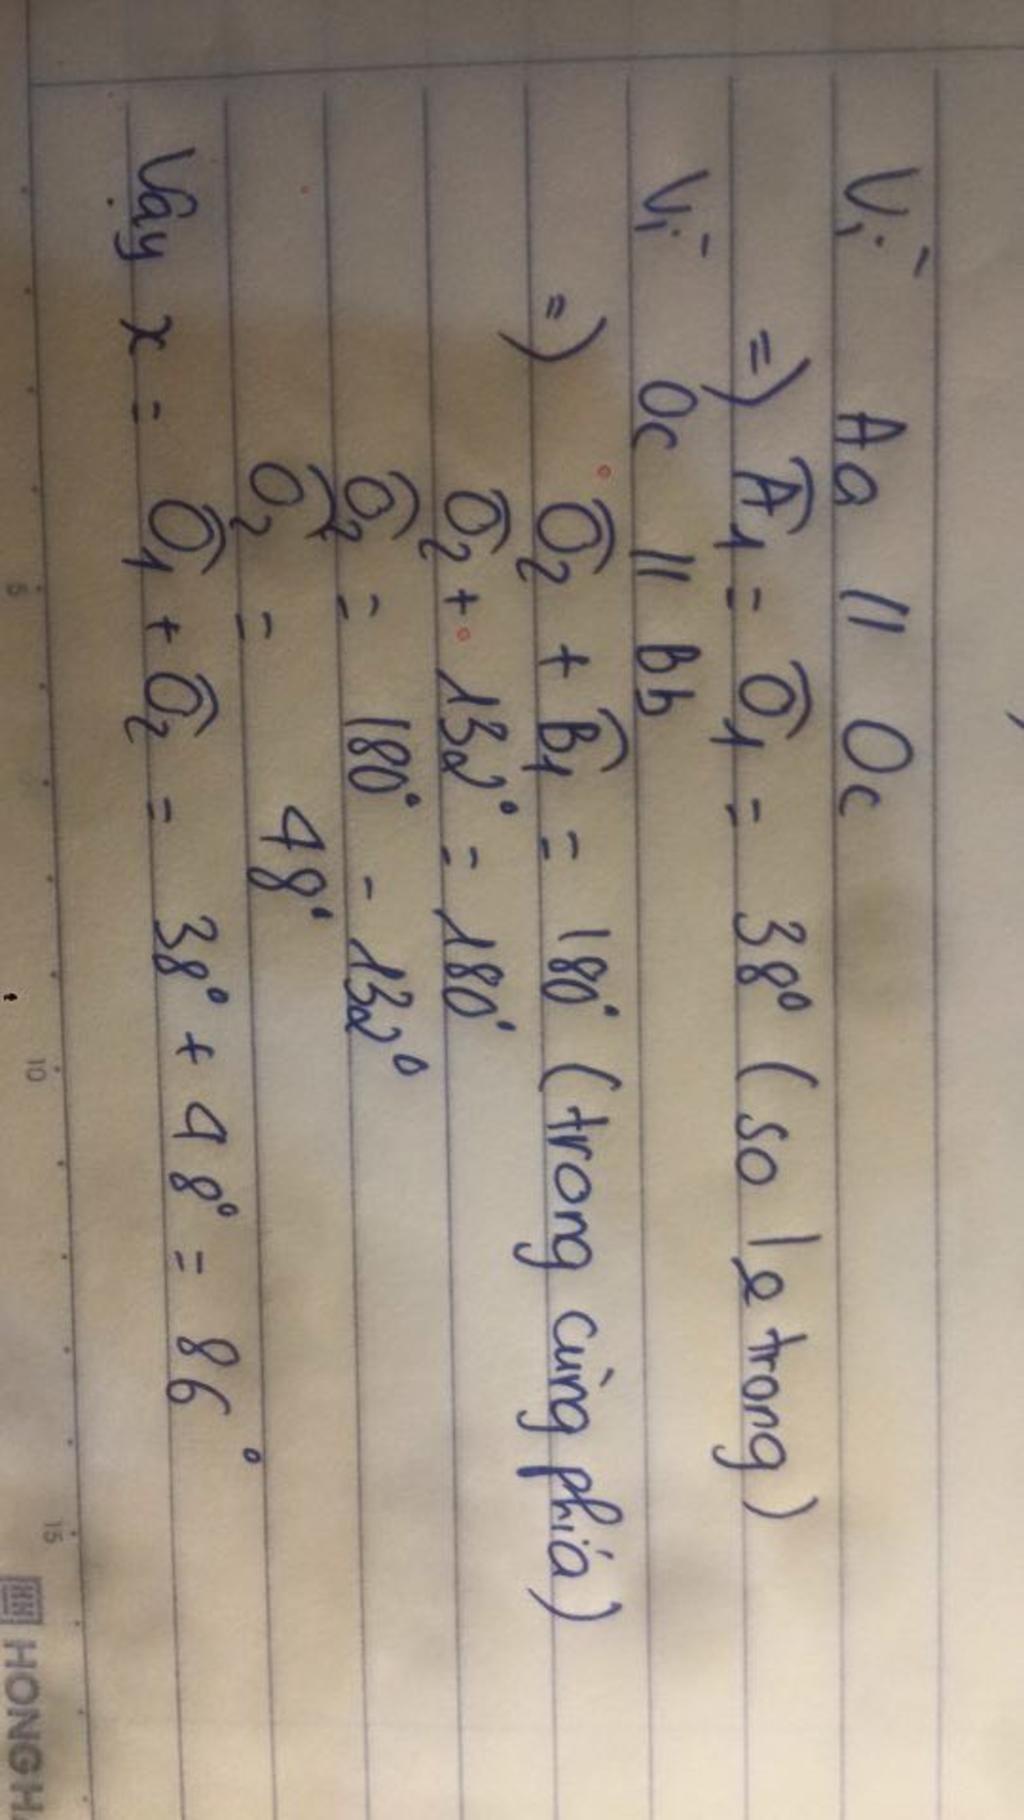 Vì Aa // Oc
=) Â₁ = Ô₁ = 38° (so le trong)
Vì Oc // Bb
=) Ô₂ + B̂₁ = 180° (trong cùng phía)
Ô₂ + 132° = 180°
Ô₂ = 180° - 132°
Ô₂ = 48°
Vậy x = Ô₁ + Ô₂ = 38° + 48° = 86°
5 10 15
HONG H